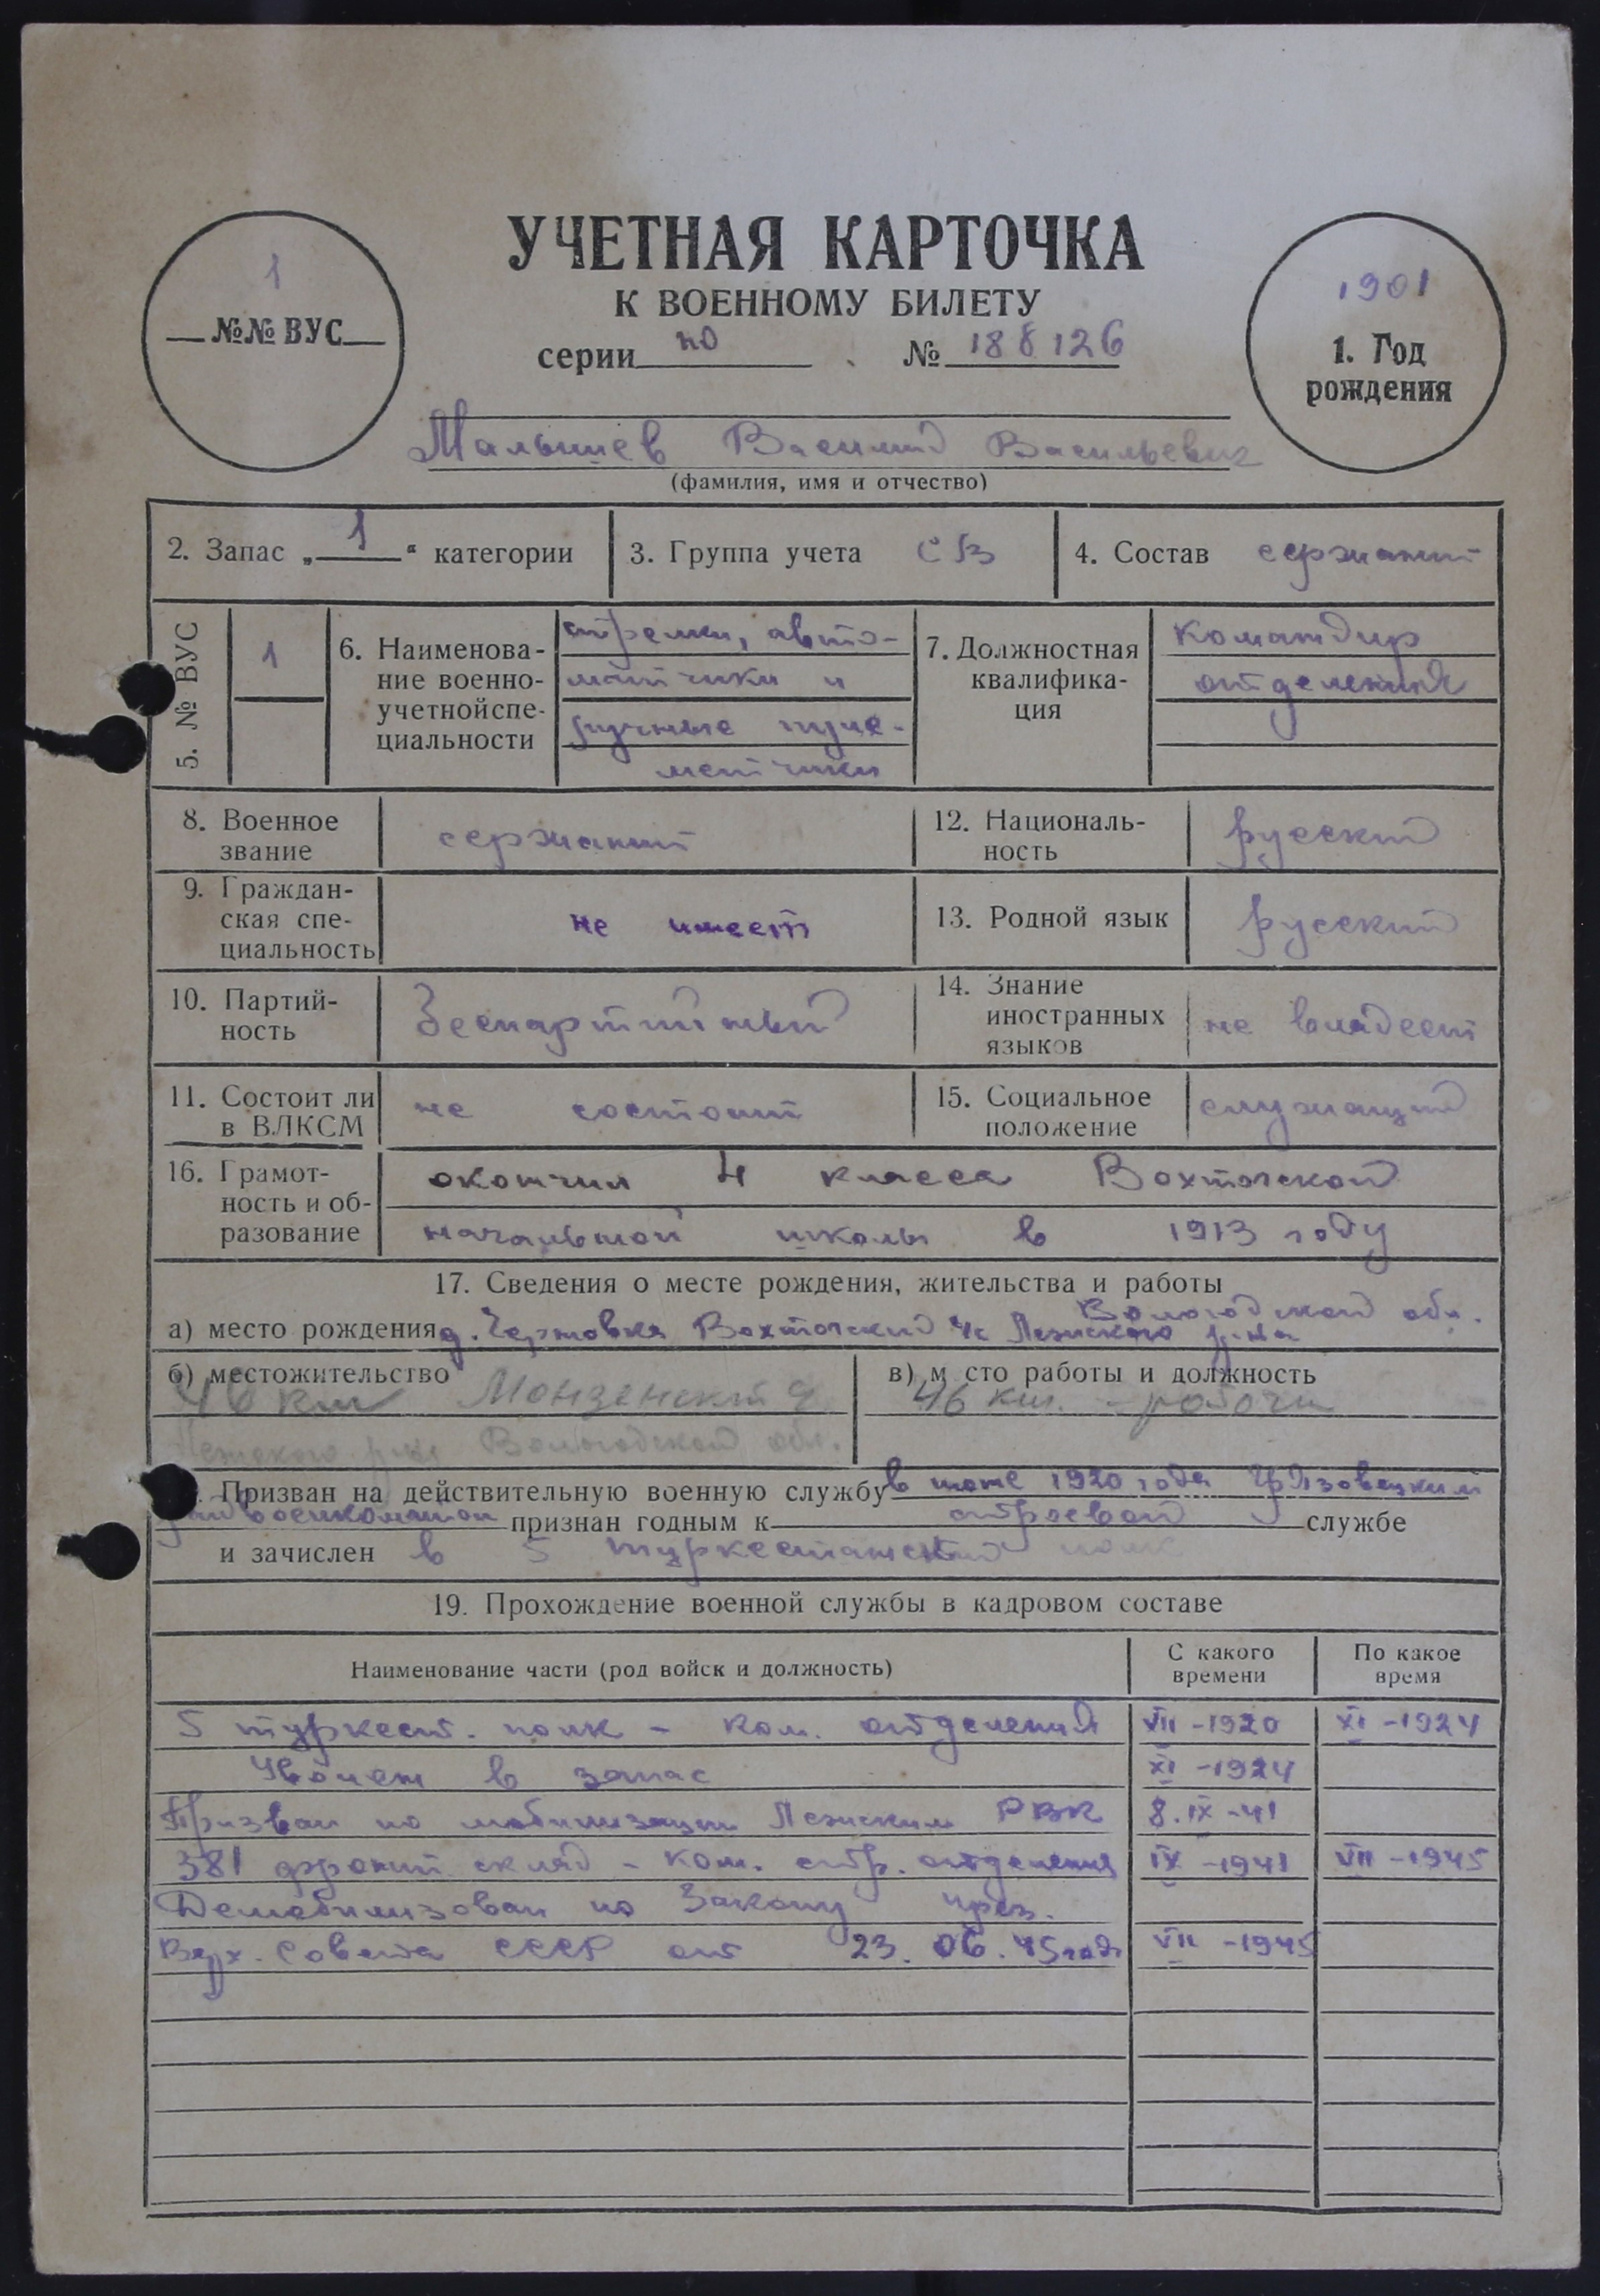 УЧЕТНАЯ КАРТОЧКА
К ВОЕННОМУ БИЛЕТУ
1
№№ ВУС
серии по № 188126
1901
1. Год
рождения
Малышев Василий Васильевич
(фамилия, имя и отчество)
2. Запас „ 1 “ категории
3. Группа учета СВ
4. Состав сержант
5. № ВУС 1
6. Наименова-
ние военно-
учетной спе-
циальности
стрелки, авто-
матчики и
ручные пуле-
метчики
7. Должностная
квалифика-
ция
командир
отделения
8. Военное
звание
сержант
12. Националь-
ность
русский
9. Граждан-
ская спе-
циальность
не имеет
13. Родной язык русский
10. Партий-
ность
беспартийный
14. Знание
иностранных
языков
не владеет
11. Состоит ли
в ВЛКСМ
не состоит
15. Социальное
положение
служащий
16. Грамот-
ность и об-
разование
окончил 4 класса Вохтогской
начальной школы в 1913 году
17. Сведения о месте рождения, жительства и работы
Вологодской обл.
а) место рождения д. Вохтогский с/с Лежского р-на
б) местожительство
46 км Монзенской
Лежского р-на Вологодской обл.
в) м сто работы и должность
46 км. - рабочи
. Призван на действительную военную службу в июне 1920 года Грязовецким
военкоматом признан годным к строевой службе
и зачислен в 5 туркестанский полк
19. Прохождение военной службы в кадровом составе
Наименование части (род войск и должность)
С какого
времени
По какое
время
5 туркест. полк - ком. отделения VII -1920 XI -1924
Уволен в запас XI -1924
Призван по мобилизации Лежским РВК 8.IX-41
381 фронт. склад - ком. стр. отделения IX -1941 VII -1945
Демобилизован по Закону през.
Верх. Совета СССР от 23.06.45года VII -1945